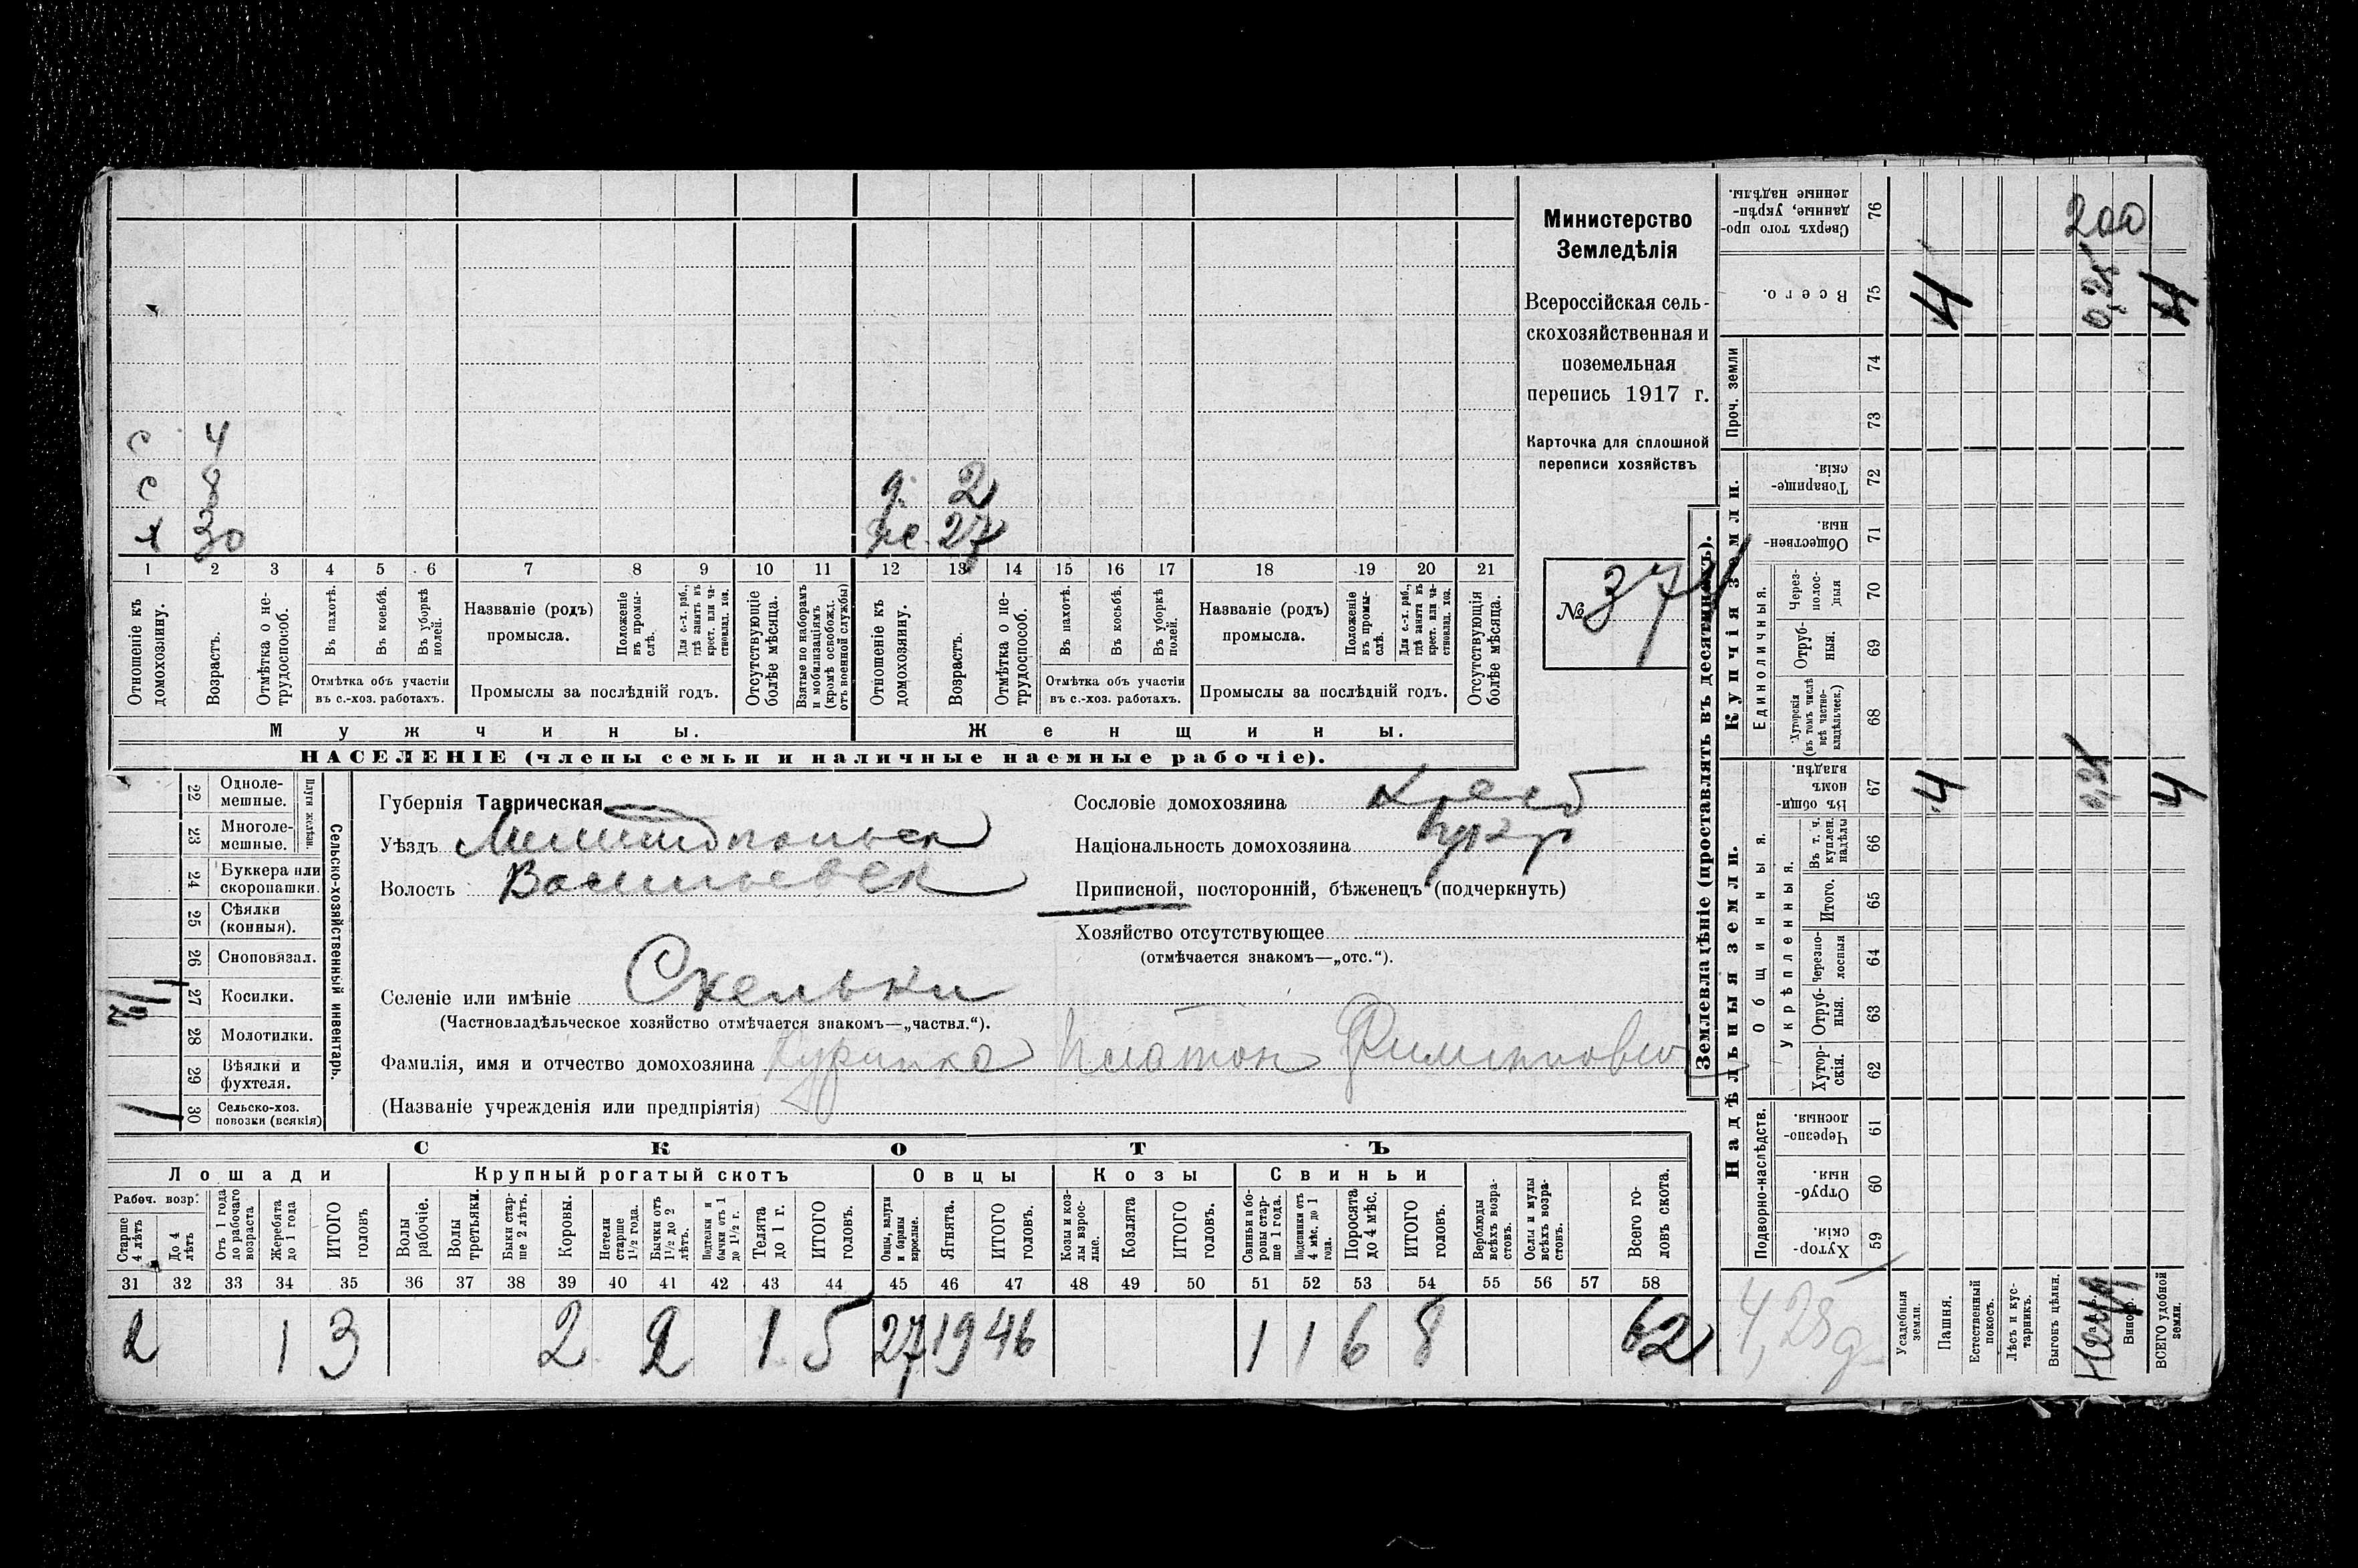 с 4
с 8 д. 2
х 30 же. 27
1 2 3 4 5 6 7 8 9 10 11 12 13 14 15 16 17 18 19 20 21
Отношеніе къ домохозяину.
Возрастъ.
Отмѣтка о нетрудоспособ.
Въ пахотѣ.
Въ косьбѣ.
Въ уборкѣ полей.
Отмѣтка объ участіи
въ с.-хоз. работахъ.
Названіе (родъ)
промысла.
Положеніе въ промыслѣ.
Для с.-х. раб., гдѣ занятъ въ крест. или частновлад. хоз.
Промыслы за послѣдній годъ.
Отсутствующіе болѣе мѣсяца.
Взятые по наборамъ и мобилизаціямъ (кромѣ освобожд. отъ военной службы)
Отношеніе къ домохозяину.
Возрастъ.
Отмѣтка о нетрудоспособ.
Въ пахотѣ.
Въ косьбѣ.
Въ уборкѣ полей.
Отмѣтка объ участіи
въ с.-хоз. работахъ.
Названіе (родъ)
промысла.
Положеніе въ промыслѣ.
Для с.-х. раб., гдѣ занята въ крест. или частновлад. хоз.
Промыслы за послѣдній годъ.
Отсутствующія болѣе мѣсяца.
Мужчины. Женщины.
НАСЕЛЕНІЕ (члены семьи и наличные наемные рабочіе).
Министерство
Земледѣлія
Всероссійская сель-
скохозяйственная и
поземельная
перепись 1917 г.
Карточка для сплошной
переписи хозяйствъ
№ 374
22 Одноле-
мешные.
23 Многоле-
мешные.
Плуги желѣзн.
24 Буккера или
скоропашки.
25 Сѣялки
(конныя).
26 Сноповязал.
27 Косилки. 1
28 Молотилки.
29 Вѣялки и
фухтеля.
30 Сельско-хоз.
повозки (всякія) 1
Сельско-хозяйственный инвентарь.
Губернія Таврическая
Уѣздъ Мелитопольск
Волость Васильевск
Селеніе или имѣніе Скельки
(Частновладѣльческое хозяйство отмѣчается знакомъ—„частвл.“).
Сословіе домохозяина Крест
Національность домохозяина
Приписной, посторонній, бѣженецъ (подчеркнуть)
Хозяйство отсутствующее
(отмѣчается знакомъ—„отс.“).
Фамилія, имя и отчество домохозяина Платон Филиппович
(Названіе учрежденія или предпріятія)
СКОТЪ
Лошади Крупный рогатый скотъ Овцы Козы Свиньи
Рабоч. возр.
Старше 4 лѣтъ
До 4 лѣтъ
Отъ 1 года до рабочаго возраста
Жеребята до 1 года
ИТОГО головъ
Волы рабочіе.
Волы третьяки.
Быки старше 2 лѣтъ.
Коровы.
Нетели старше 1½ года.
Бычки отъ 1½ до 2 лѣтъ.
Подтелки и бычки отъ 1 до 1½ г.
Телята до 1 г.
ИТОГО головъ.
Овцы, валухи и бараны взрослые.
Ягнята.
ИТОГО головъ.
Козы и козлы взрослые.
Козлята
ИТОГО головъ.
Свиньи и боровы старше 1 года.
Подсвинки отъ 4 мѣс. до 1 года.
Поросята до 4 мѣс.
ИТОГО головъ.
Верблюды всѣхъ возрастовъ.
Ослы и мулы всѣхъ возрастовъ.
Всего головъ скота.
31 32 33 34 35 36 37 38 39 40 41 42 43 44 45 46 47 48 49 50 51 52 53 54 55 56 57 58
2 1 3 2 2 1 5 27 19 46 1 1 6 8 62
Землевладѣніе (проставлять въ десятинахъ).
Купчія земли.
Надѣльныя земли.
Сверхъ того проданные, укрѣпленные надѣлы. 76 200
Всего. 75 4 0,25 4
Проч. земли 74
73
Товарищескія. 72
Общественныя. 71
Единоличныя.
Черезполосныя 70
Отрубныя. 69
Хуторскія (въ томъ числѣ всѣ частновладѣльческ.) 68
Общинныя.
Въ общинномъ владѣн. 67 4 0,25 4
Укрѣпленныя.
Въ т. ч. куплен. надѣлы 66
Итого. 65
Черезполосныя 64
Отрубныя. 63
Хуторскія. 62
Подворно-наслѣдств.
Черезполосныя. 61
Отрубныя. 60
Хуторскія. 59
4,25 д
Усадебныя земли.
Пашня.
Естественный покосъ.
Лѣсъ и кустарникъ.
Выгонъ цѣлин.
ВСЕГО удобной земли.